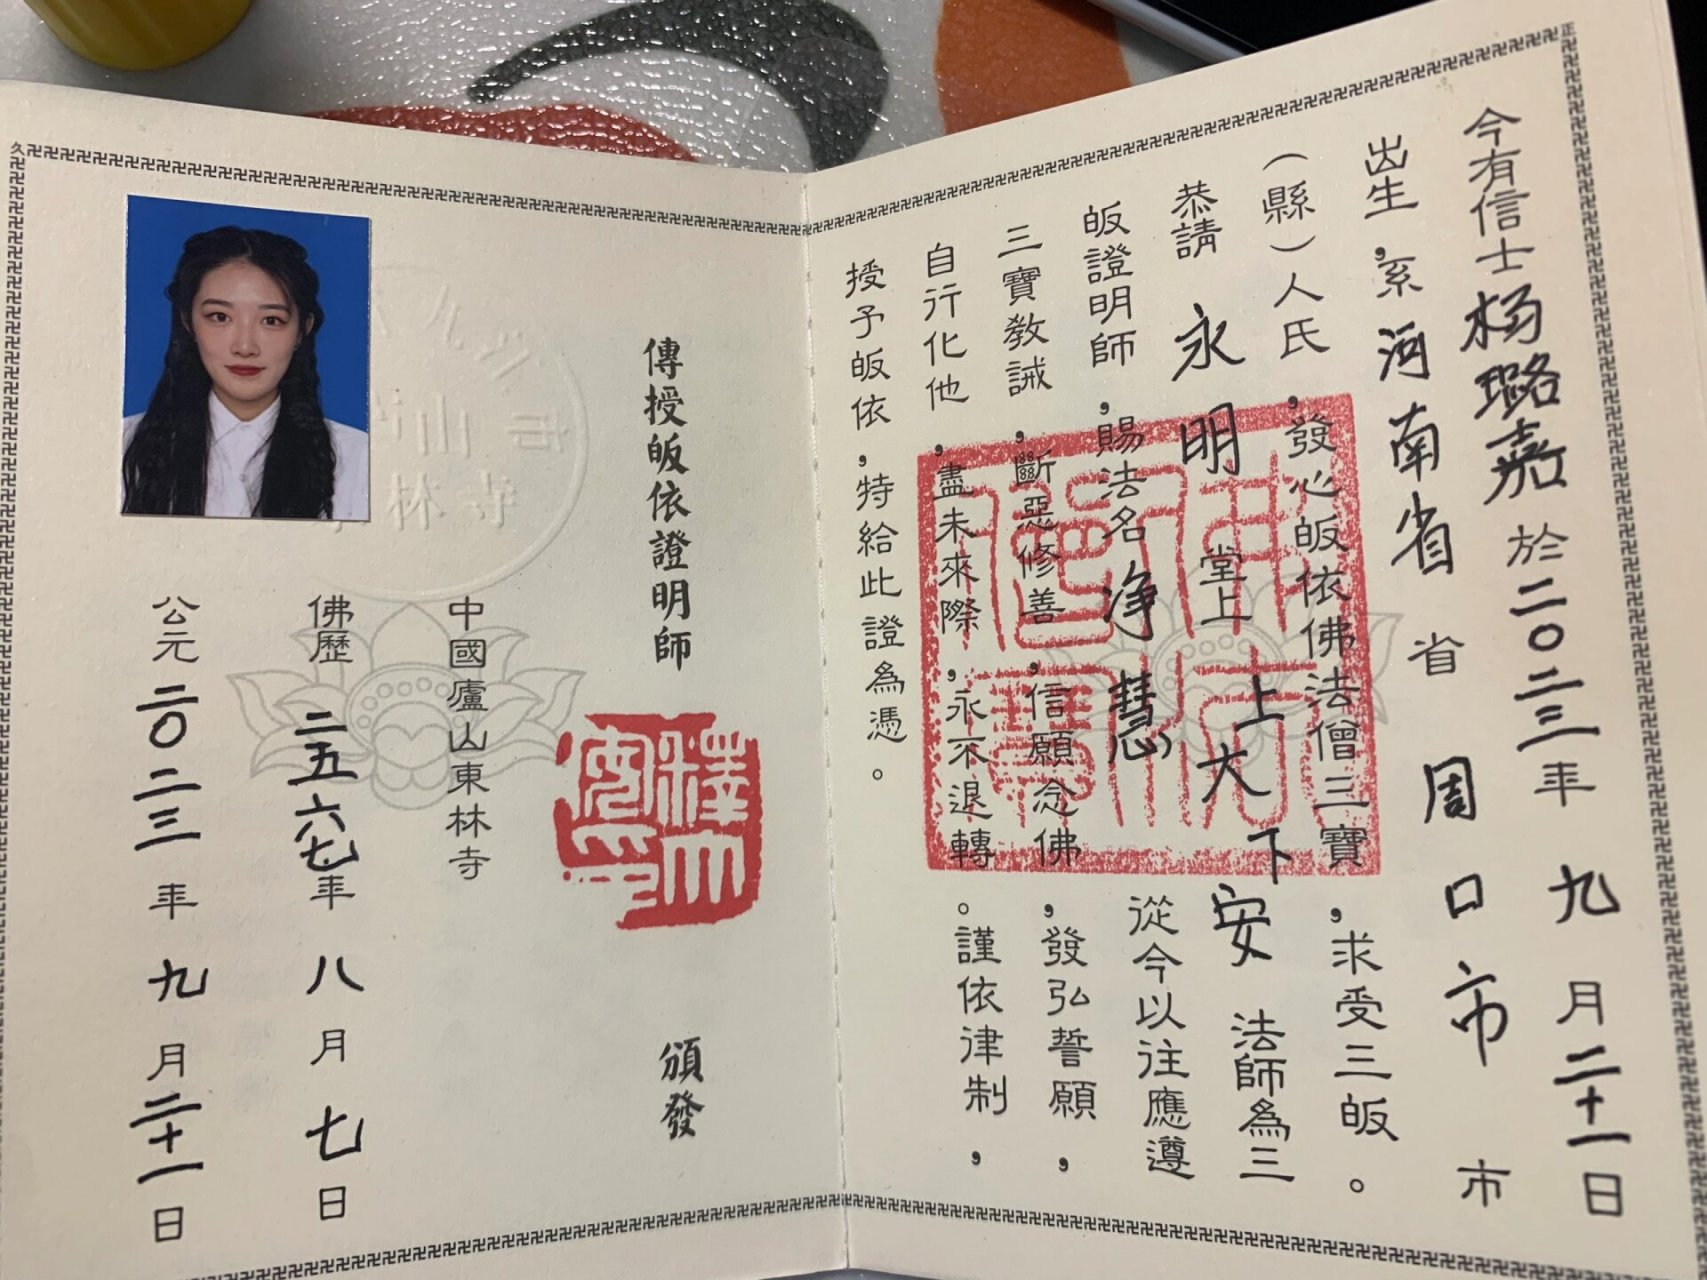 今有信士杨璐嘉於二〇二三年九月二十一日
出生，系河南省省周口市市
（縣）人氏，發心皈依佛法僧三寶，求受三皈。
恭請永明堂上上大下安法師為三
皈證明師，賜法名净慧從今以往應遵
三寶教誡，斷惡修善，信願念佛，發弘誓願，
自行化他，盡未來際，永不退轉。謹依律制，
授予皈依，特給此證為憑。
傳授皈依證明師
頒發
中國廬山東林寺
佛歷二五六七年八月七日
公元二〇二三年九月二十一日